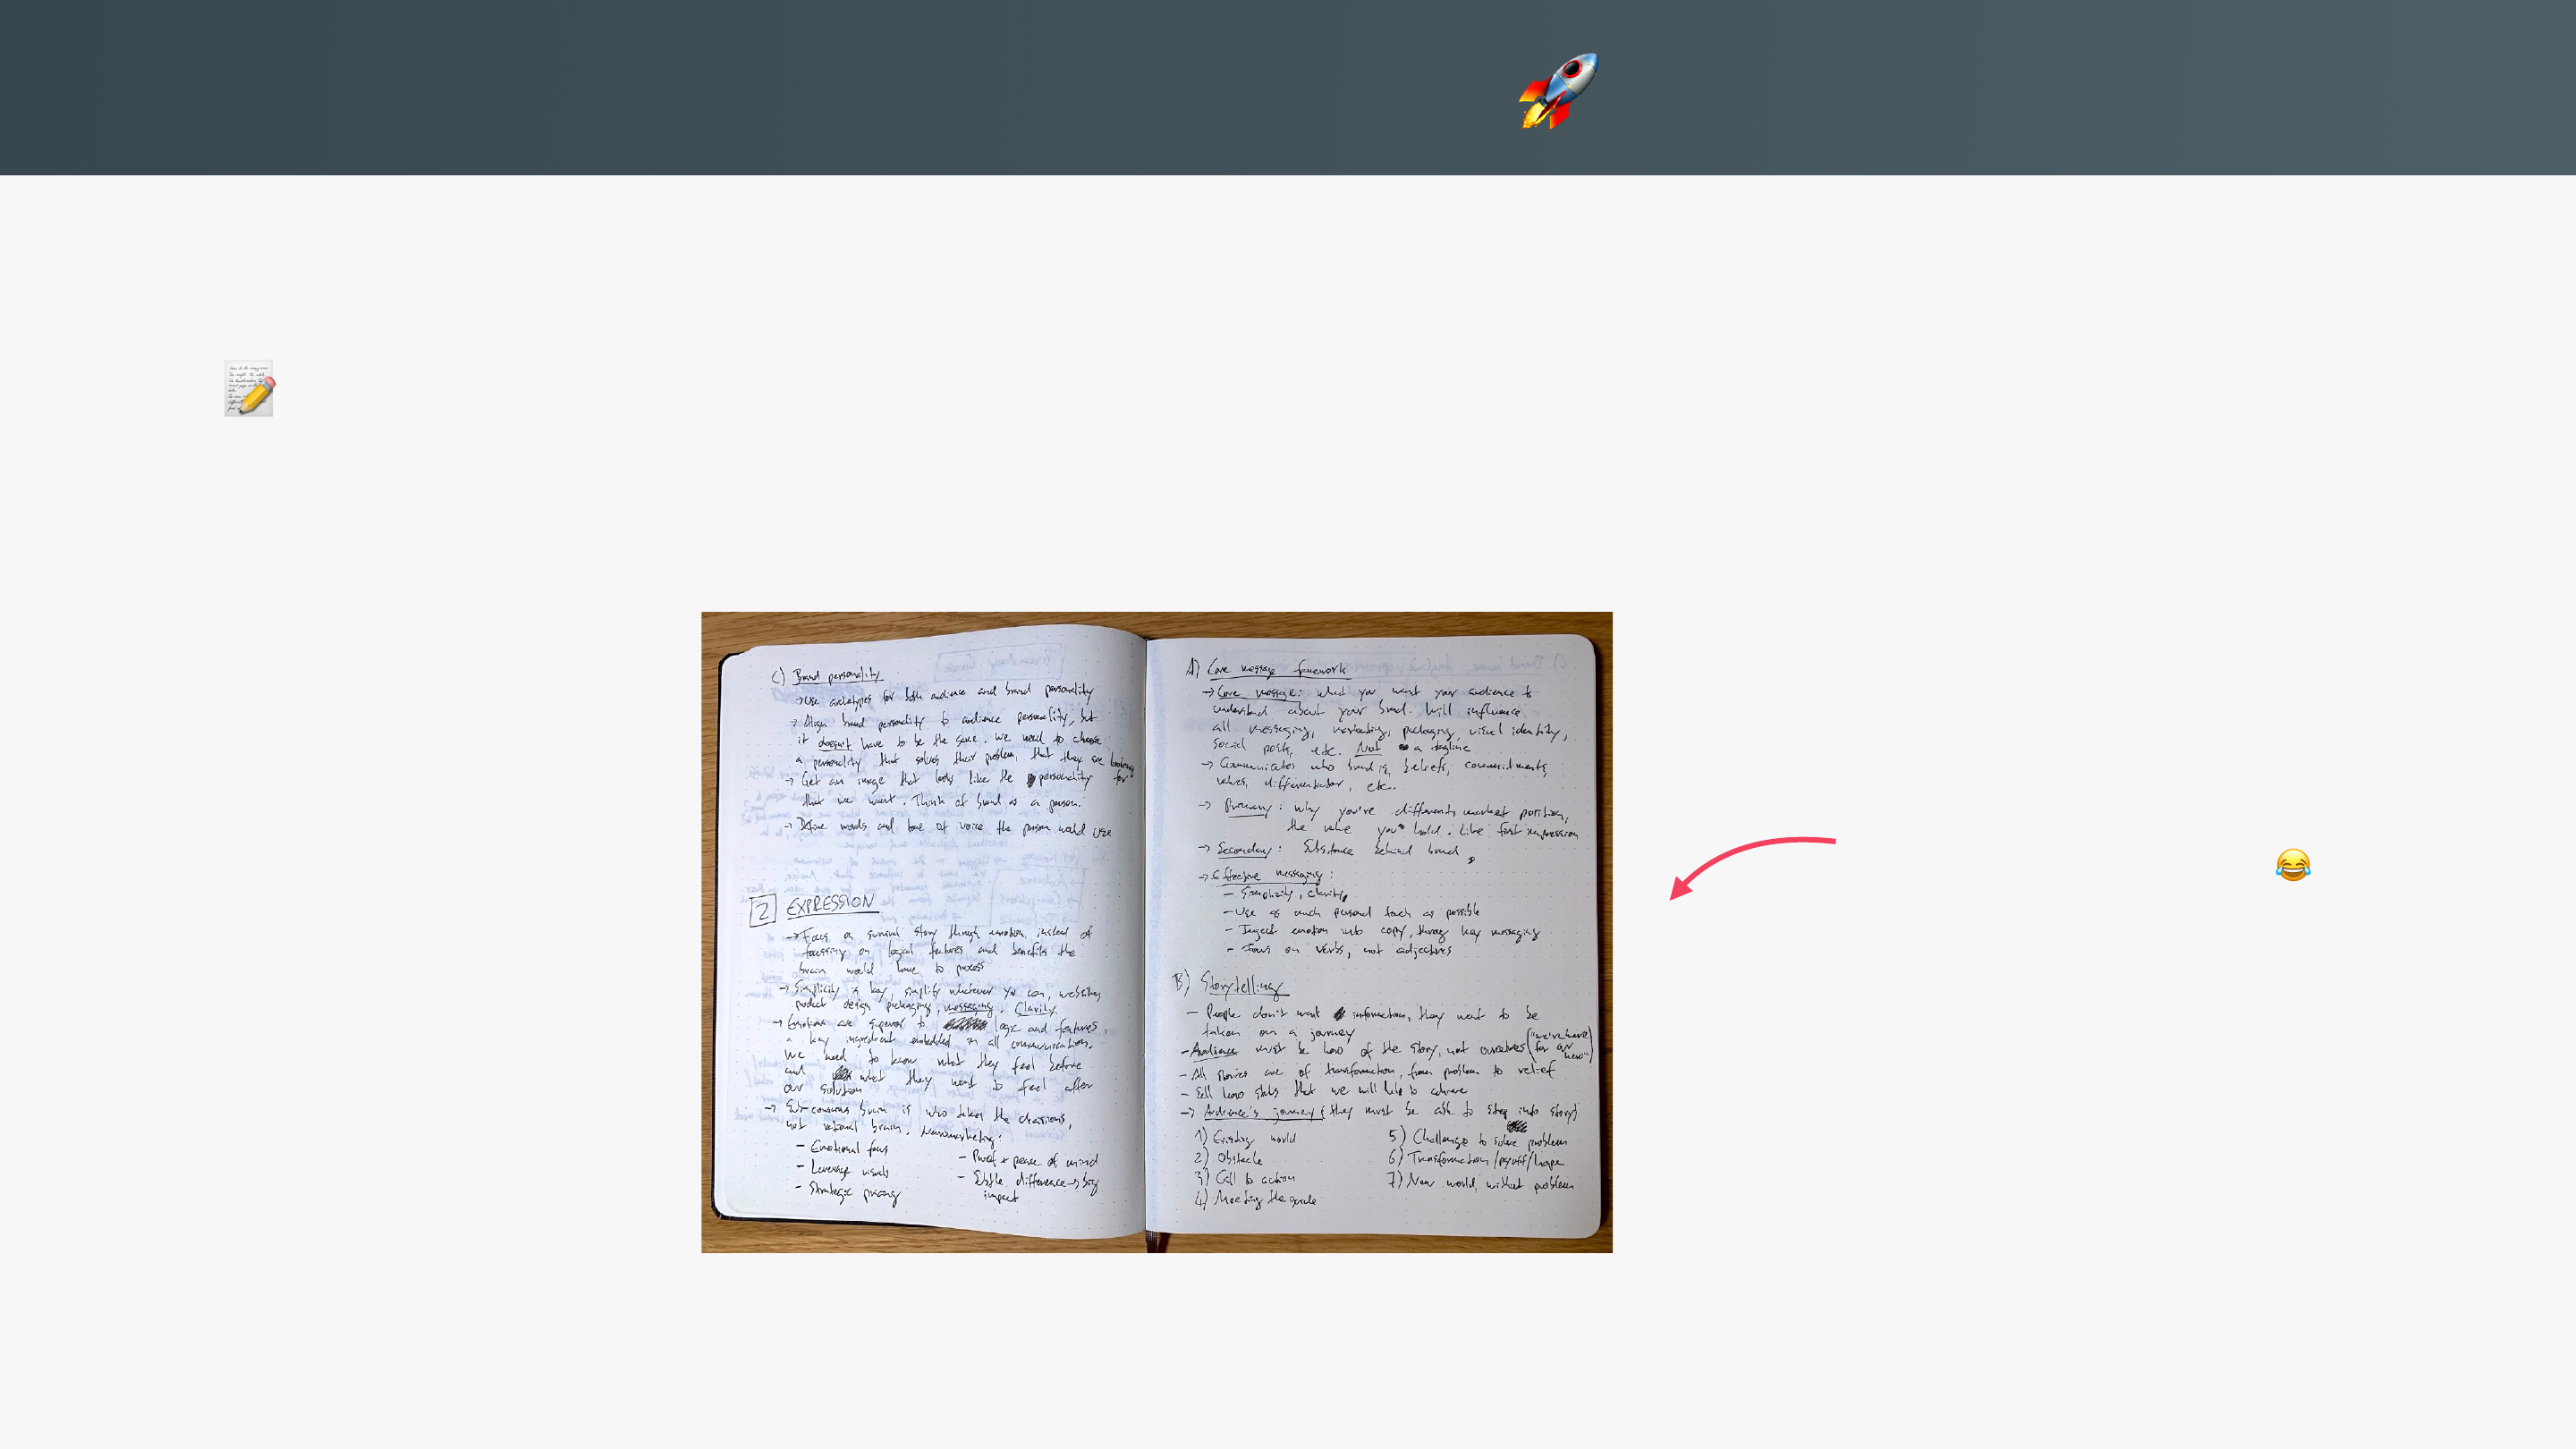 C) Brand personality
→ Use archetypes for both audience and brand personality
→ Align brand personality to audience personality, but
it doesn't have to be the same. We need to choose
a personality that solves their problem, that they are looking
for
→ Get an image that looks like the personality
that we want. Think of brand as a person.
→ Define words and tone of voice the person would use
2 EXPRESSION
→ Focus on survival story through emotion, instead of
focusing on logical features and benefits the
brain would have to process
→ Simplicity is key, simplify whatever you can, websites,
product design, packaging, messaging. Clarity.
→ Emotions are superior to logic and features,
a key ingredient embedded in all communication.
We need to know what they feel before
and what they want to feel after
our solution
→ Sub-conscious brain is who takes the decisions,
not rational brain. Neuromarketing:
- Emotional focus
- Leverage visuals
- Strategic pricing
- Proof + peace of mind
- Subtle difference → big
impact
A) Core message framework
→ Core message: what you want your audience to
understand about your brand. Will influence
all messaging, marketing, packaging, visual identity,
social posts, etc. Not a tagline
→ Communicates who brand is, beliefs, commitments,
values, differentiator, etc.
→ Primary: why you're different, market position,
the value you hold. Like first impression
→ Secondary: Substance behind brand
→ Effective messaging:
- Simplicity, clarity
- Use as much personal touch as possible
- Inject emotion into copy, through key messaging
- Focus on verbs, not adjectives
B) Storytelling
- People don't want information, they want to be
taken on a journey
- Audience must be hero of the story, not ourselves ("we're here
for our
hero")
- All stories are of transformation, from problem to relief
- Sell hero status that we will help to achieve
→ Audience's journey (they must be able to step into story)
1) Existing world
2) Obstacle
3) Call to action
4) Meeting the guide
5) Challenge to solve problem
6) Transformation/payoff/hope
7) New world, without problem